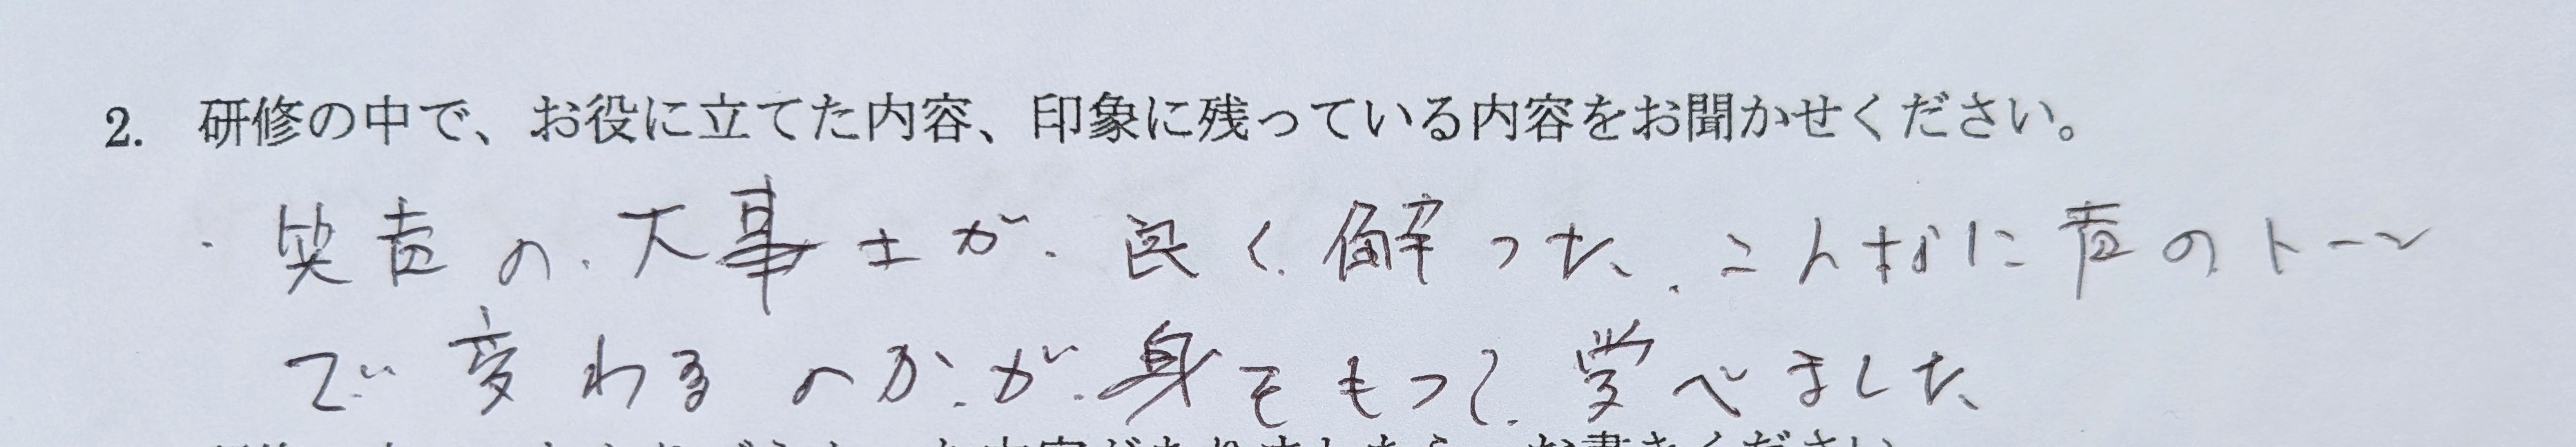 2. 研修の中で、お役に立てた内容、印象に残っている内容をお聞かせください。
・笑声の大事さが良く解った、こんなに声のトーン
で変わるのかが身をもって学べました